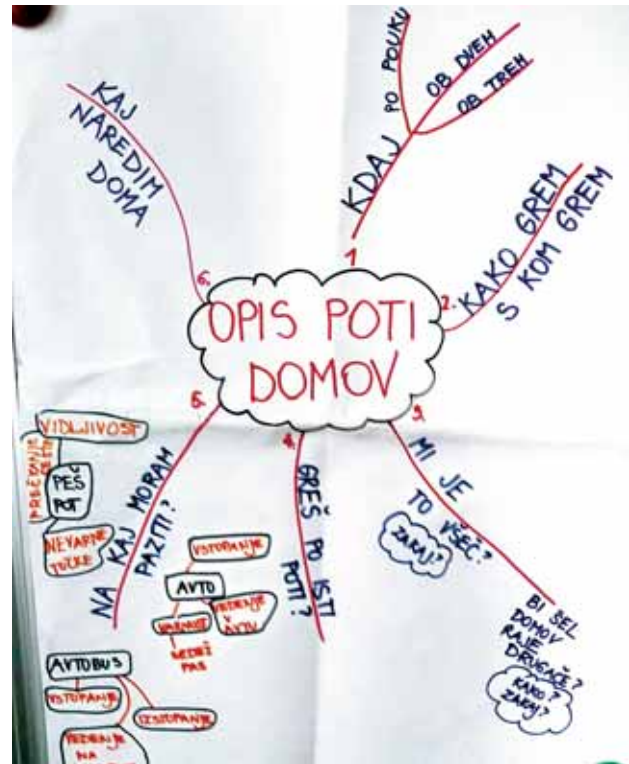 OPIS POTI
DOMOV
1
KDAJ
PO POUKU
OB DVEH
OB TREH
2.
KAKO GREM
S KOM GREM
3.
MI JE
TO VŠEČ?
ZAKAJ?
BI ŠEL
DOMOV
RAJE
DRUGAČE?
KAKO?
ZAKAJ?
4.
GREŠ PO ISTI
POTI?
5.
NA KAJ MORAM
PAZITI?
VIDLJIVOST
PEŠ
POT
NEVARNE
TOČKE
VSTOPANJE
AVTO
VEDENJE
V AVTU
VARNOST
PAS
AVTOBUS
VSTOPANJE
IZSTOPANJE
VEDENJE
NA
6.
KAJ
NAREDIM
DOMA